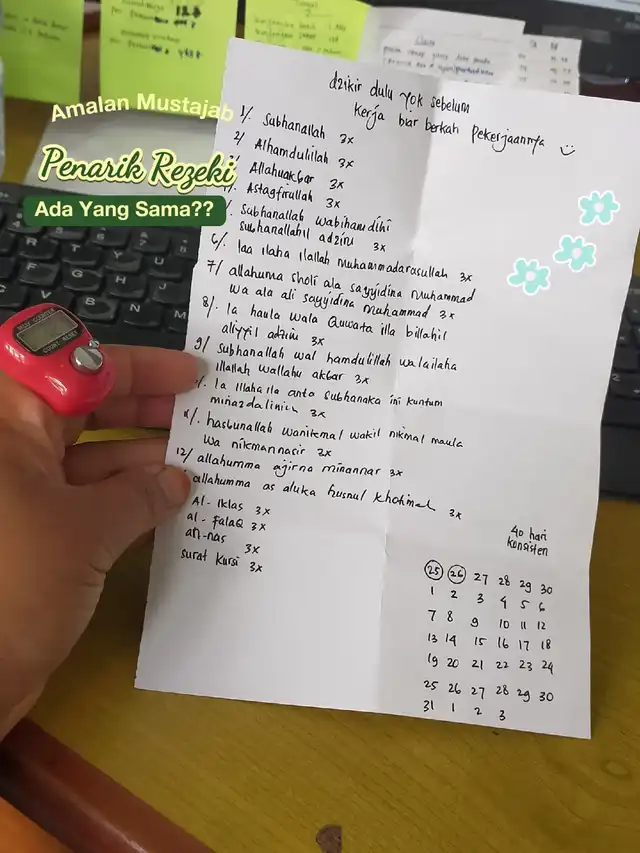 Amalan Mustajab
Penarik Rezeki
Ada Yang Sama??
dzikir dulu yok sebelum
kerja biar berkah pekerjaannya
1/. Subhanallah 3x
2/ Alhamdulilah 3x
Allahuakbar 3x
Astagfirullah 3x
Subhanallah wabihamdihi
Subhanallahil adzim 3x
6/. laa ilaha ilallah Muhammadarasullah 3x
7/ allahuma sholi ala sayyidina Muhammad
wa ala ali sayyidina Muhammad 3x
8/. la haula wala Quwata illa billahil
aliyyil adzim 3x
9/ Subhanallah wal hamdulillah walailaha
illallah wallahu akbar 3x
la illaha ila anta subhanaka ini kuntum
minazdalimin 3x
hasbunallah wanikmal wakil nikmal maula
wa nikmannasir 3x
12/ allahumma ajirna minannar 3x
allahumma as aluka husnul khotimah 3x
Al-Iklas 3x
al-falaQ 3x
an-nas 3x
surat kursi 3x
40 hari
konsisten
25 26 27 28 29 30
1 2 3 4 5 6
7 8 9 10 11 12
13 14 15 16 17 18
19 20 21 22 23 24
25 26 27 28 29 30
31 1 2 3